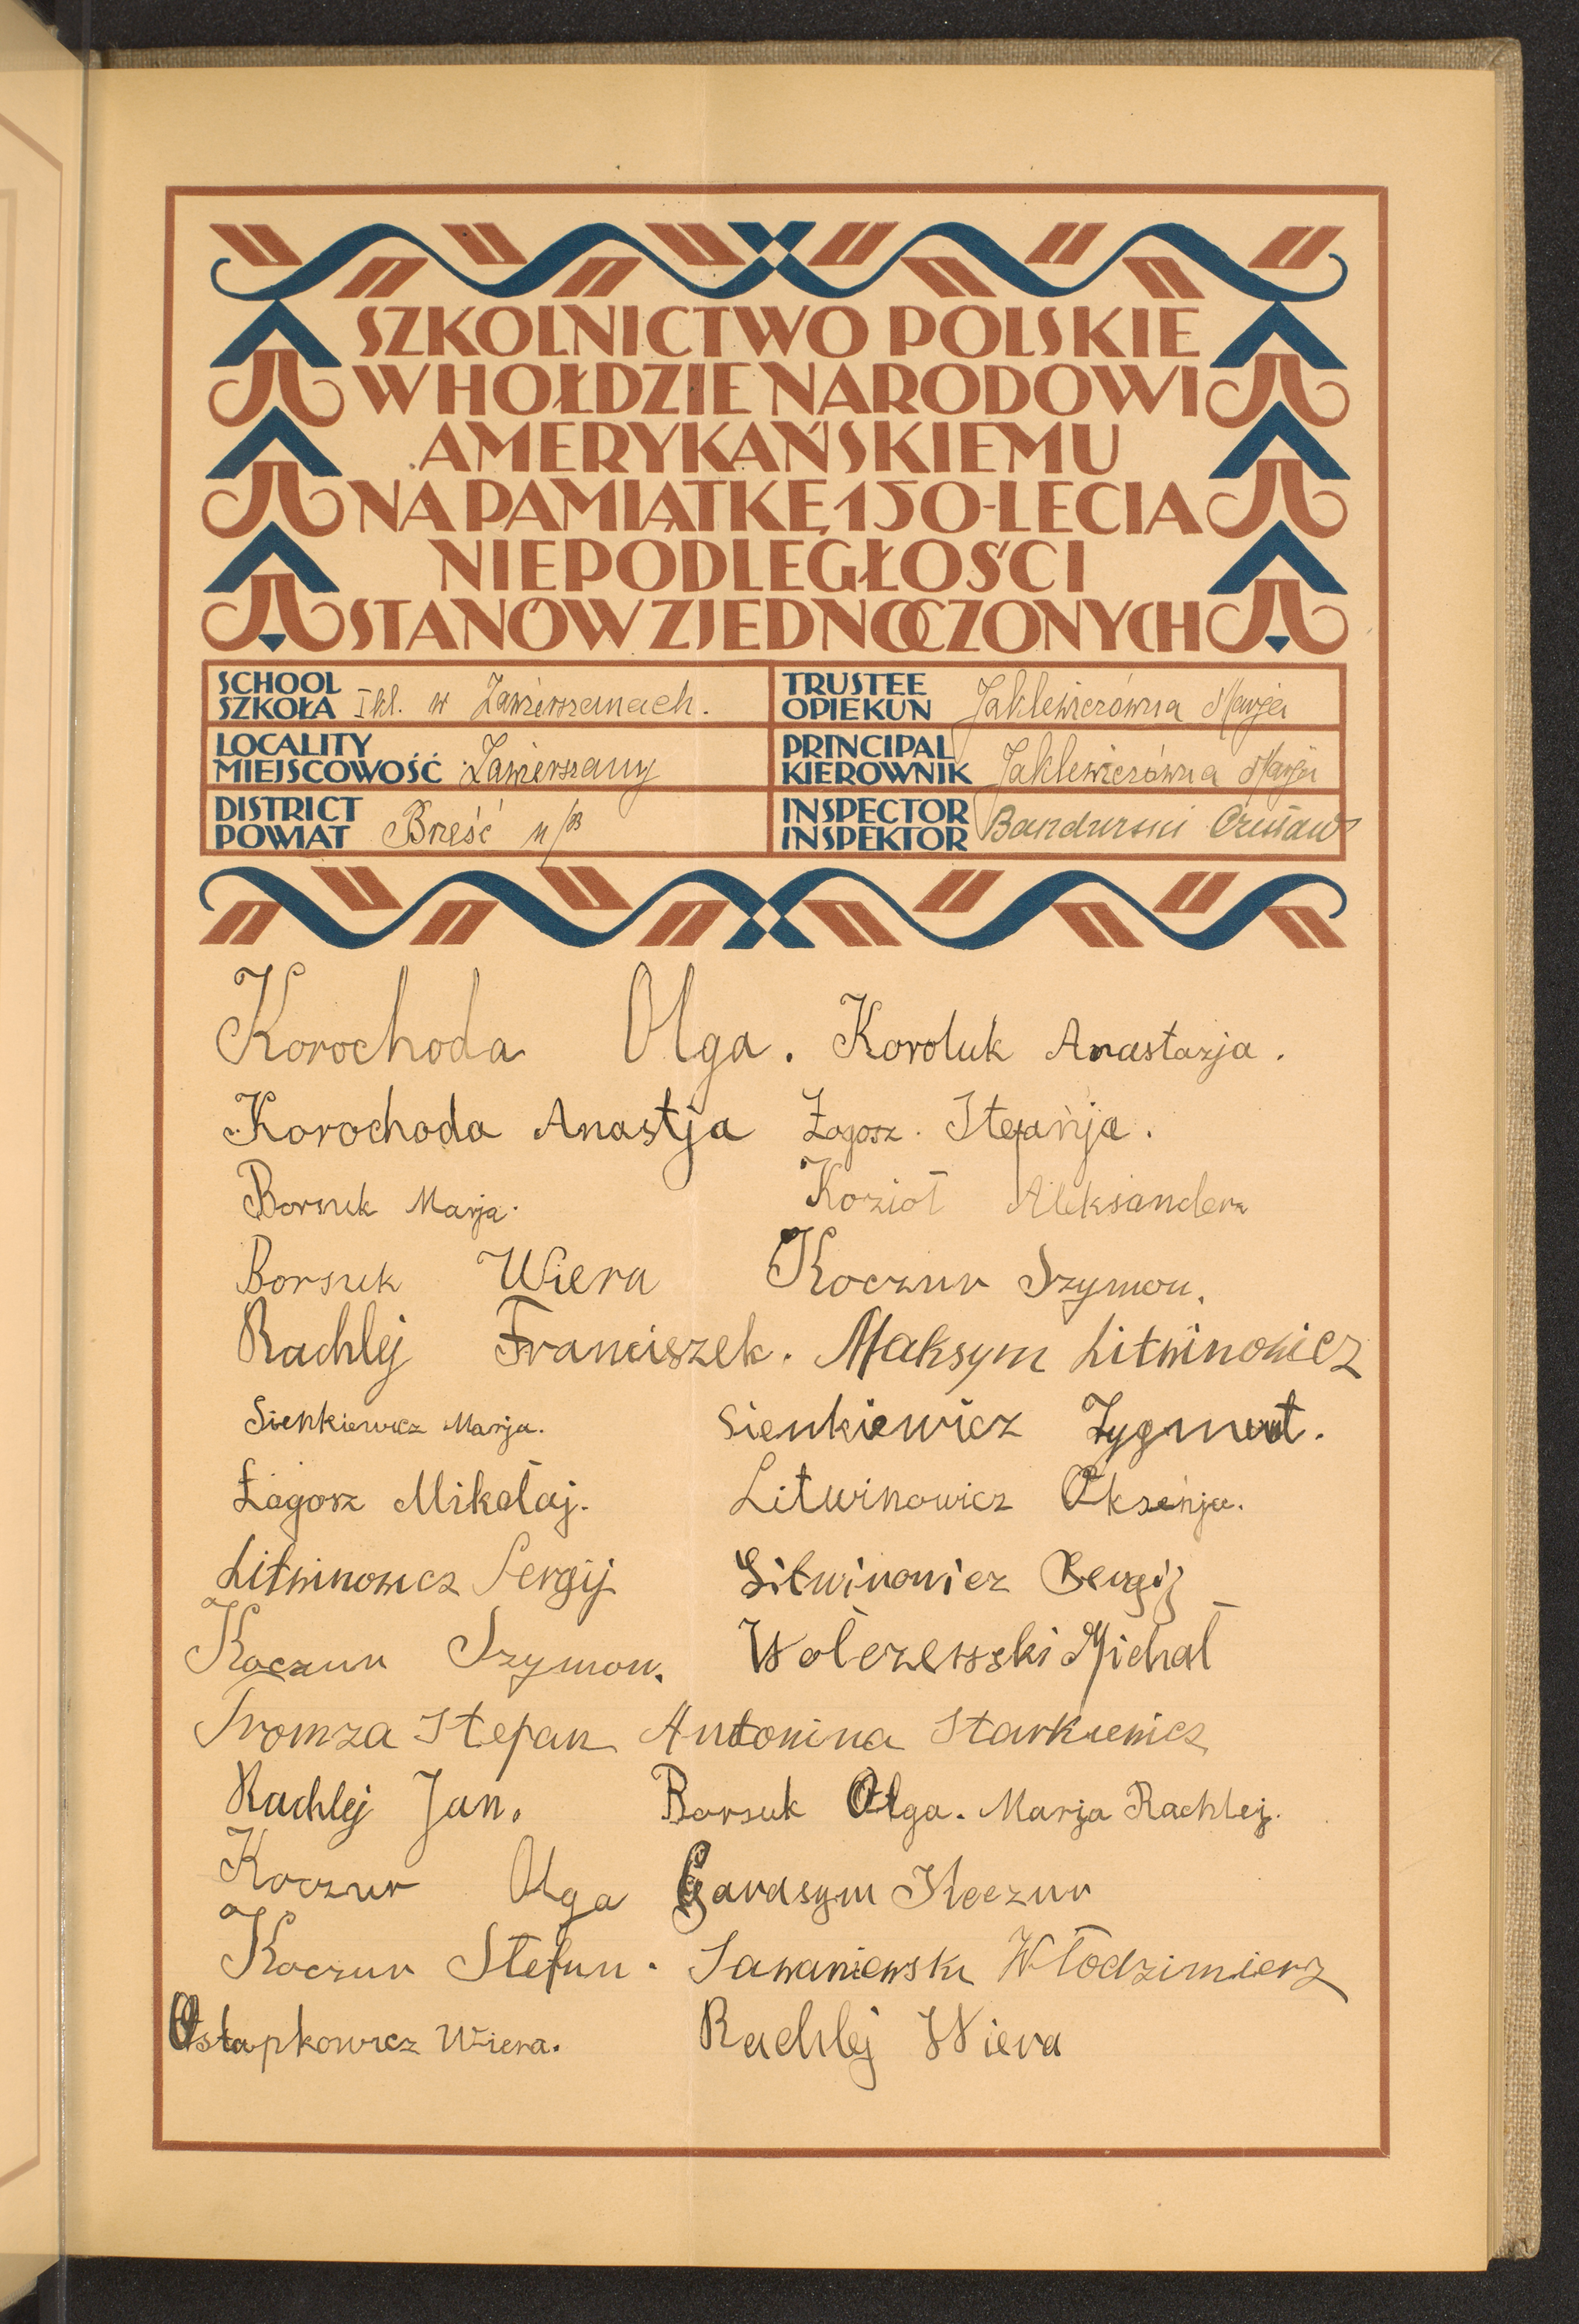 SZKOLNICTWO POLSKIE
W HOŁDZIE NARODOWI
AMERYKAŃSKIEMU
NA PAMIĄTKĘ 150-LECIA
NIEPODLEGŁOŚCI
STANÓW ZJEDNOCZONYCH
SCHOOL
SZKOŁA I kl. w Zawierszanach.
TRUSTEE
OPIEKUN Jaklewiczówna Marja
LOCALITY
MIEJSCOWOŚĆ Zawierszany
PRINCIPAL
KIEROWNIK Jaklewiczówna Marja
DISTRICT
POWIAT Brześć n/B
INSPECTOR
INSPEKTOR Bandurski Czesław
Korochoda Olga. Koroluk Anastazja.
Korochoda Anastja Łagosz. Stefanja.
Borsuk Marja. Kozioł Aleksander
Borsuk Wiera Koczur Szymon.
Rachlej Franciszek. Maksym Litwinowicz
Sienkiewicz Marja. Sienkiewicz Zygmunt.
Łagosz Mikołaj. Litwinowicz Oksenja.
Litwinowicz Sergij Litwinowicz Sergij
Koczur Szymon. Wołczewski Michał
Sromza Stepan Antonina Starkiewicz
Rachlej Jan. Borsuk Olga. Marja Rachlej.
Koczur Olga Garasym Koczur
Koczur Stefan. Sawaniewski Włodzimierz
Ostapkowicz Wiera. Rachlej Wiera